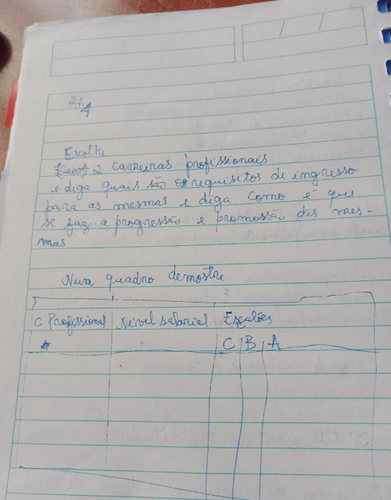 Escolhe
2 carreiras profissionais
e diga quais são os requisitos de ingresso
para as mesmas e diga como é que
se faz a progressão e promoção das mes-
mas
Num quadro demostre
C Profissional Nivel salarial Escalões
C B A